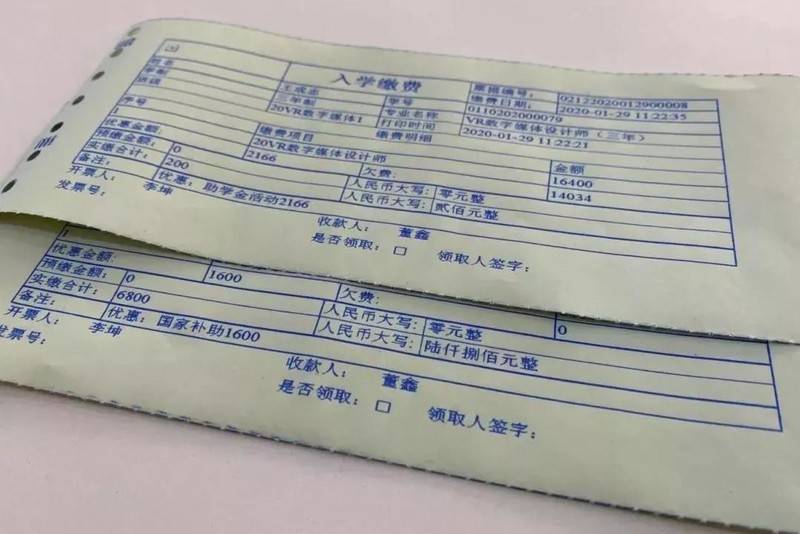 入学缴费
票据编号: 02122020012900008
缴费日期: 2020-01-29 11:22:35
姓名 王成志 学号 0110202000079
学制 三年制 专业名称 VR数字媒体设计师(三年)
班级 20VR数字媒体1 打印时间 2020-01-29 11:22:21
序号 缴费项目 缴费明细 金额
20VR数字媒体设计师 16400
优惠金额: 2166 欠费: 14034
预缴金额: 0 人民币大写: 零元整
实缴合计: 200 人民币大写: 贰佰元整
备注: 优惠:助学金活动2166
开票人: 李坤 收款人: 董鑫
发票号: 是否领取:□ 领取人签字:
1
优惠金额: 1600 欠费: 0
预缴金额: 0 人民币大写: 零元整
实缴合计: 6800 人民币大写: 陆仟捌佰元整
备注: 优惠:国家补助1600
开票人: 李坤 收款人: 董鑫
发票号: 是否领取:□ 领取人签字: